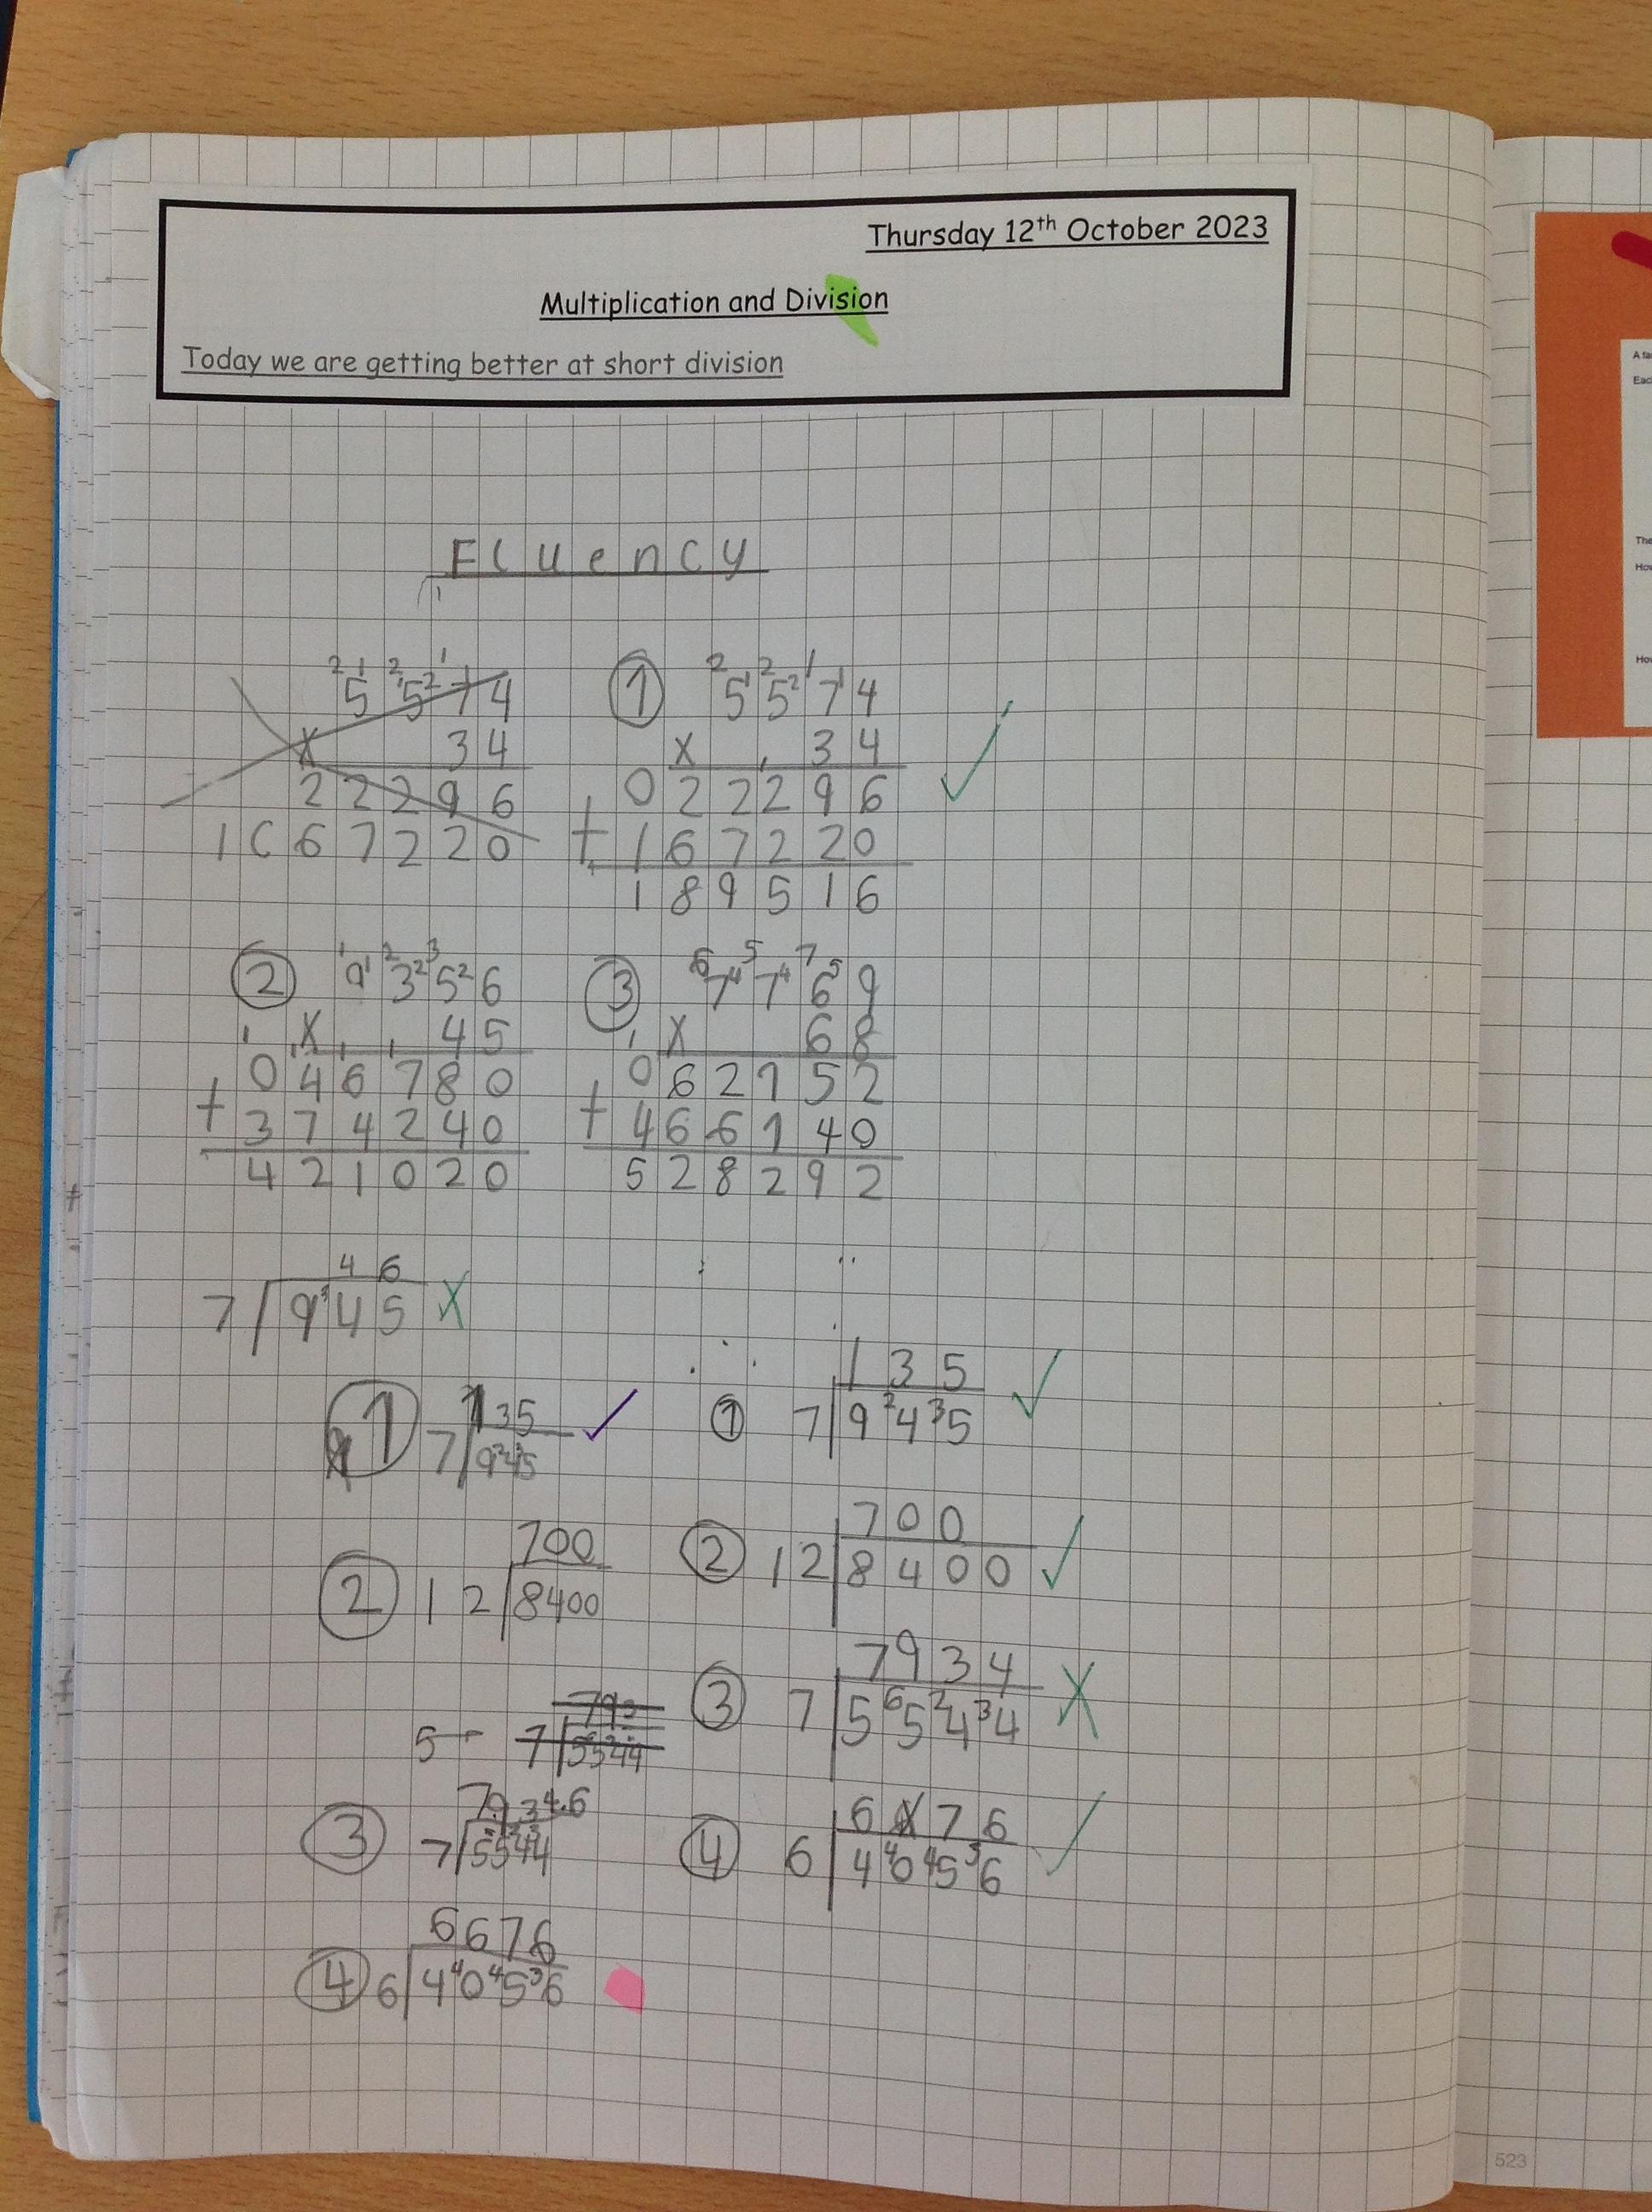 Thursday 12th October 2023
Multiplication and Division
Today we are getting better at short division
Fluency
5574
x 34
22296
1667220
① 5574
x 34
022296
+ 167220
189516
② 9356
x 45
046780
+ 374240
421020
③ 7769
x 68
062152
+ 466140
528292
46
7 945 x
① 135 ✓
7 945
① 135 ✓
7 945
② 700
12 8400
② 700
12 8400 ✓
793
5 7 5544
③ 7934
7 5544 x
③ 7934.6
7 5544
④ 6 76
6 40456 ✓
④ 6676
6 40456
523